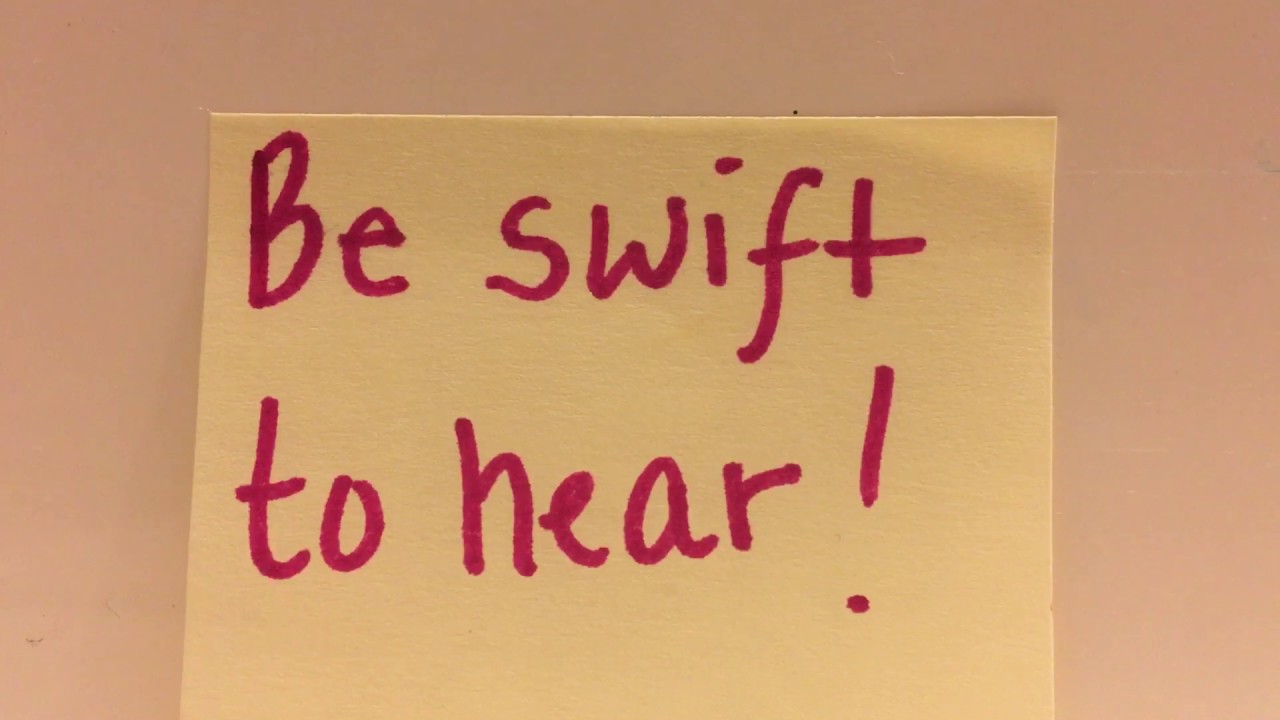 Be swift
to hear!